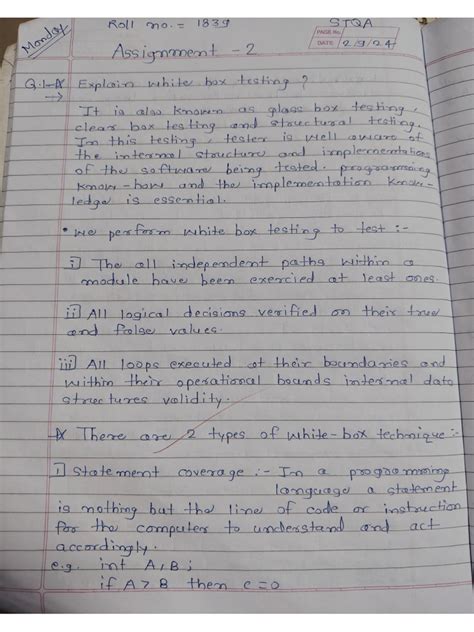 Monday
Roll no. = 1839 STQA
PAGE No.
DATE 2/9/24
Assignment - 2
Q.1 Explain white box testing ?
→ It is also known as glass box testing,
clear box testing and structural testing.
In this testing, tester is well aware of
the internal structure and implementations
of the software being tested. programming
know-how and the implementation know-
ledge is essential.
• we perform white box testing to test :-
i] The all independent paths within a
module have been exercied at least ones.
ii] All logical decisions verified on their true
and false values.
iii] All loops executed at their boundaries and
within their operational bounds internal data
structures validity.
There are 2 types of white-box technique :-
i] statement coverage :- In a programming
language a statement
is nothing but the line of code or instruction
for the computer to understand and act
accordingly.
e.g. int A, B ;
if A > B then c = 0